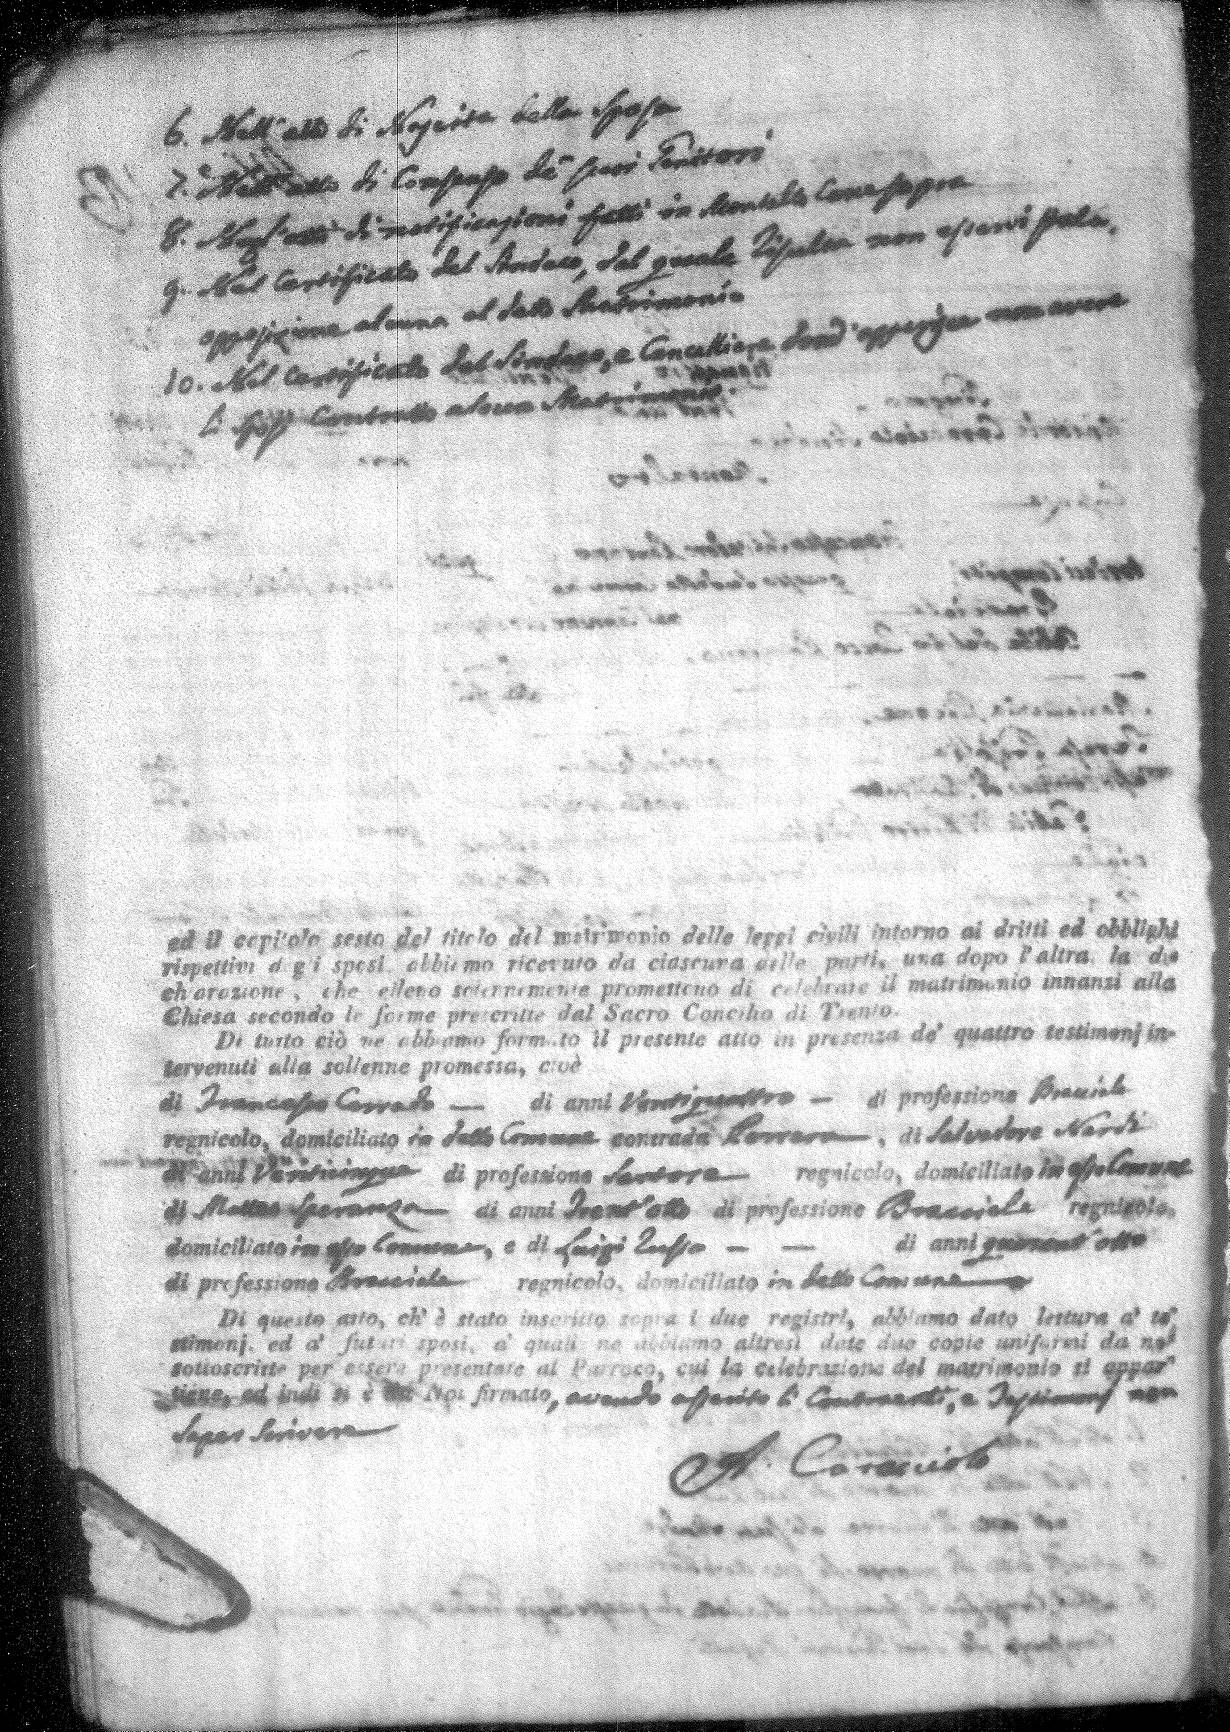 6. Nell'atto di Nascita della Sposa
7.° Nell'atto di Consenso de' suoi Genitori
8. Negl'atti di notificazioni fatti in Montella Comesopra
9. Nel Certificato del Sindaco, dal quale Risulta non esservi stata
opposizione alcuna al detto Matrimonio
10. Nel Certificato del Sindaco, e Cancelliere dond'apparisce non avere
li sposi Contratto alcun Matrimonio.
ed il capitolo sesto del titolo del matrimonio delle leggi civili intorno ai dritti ed obblighi
rispettivi degli sposi, abbiamo ricevuto da ciascuna delle parti, una dopo l'altra, la di-
chiarazione, che elleno solennemente promettono di celebrare il matrimonio innanzi alla
Chiesa secondo le forme prescritte dal Sacro Concilio di Trento.
Di tutto ciò ne abbiamo formato il presente atto in presenza de' quattro testimonj in-
tervenuti alla sollenne promessa, cioè
di Francesco Corrado — di anni Ventiquattro — di professione Bracciale
regnicolo, domiciliato in detto Comune contrada , di Salvadore Nardi
di anni Venticinque di professione Sartore regnicolo, domiciliato in esso Comune
di Matteo Speranza di anni Trent'otto di professione Bracciale regnicolo,
domiciliato in esso Comune, e di Luigi — — di anni quarant'otto
di professione Bracciale regnicolo, domiciliato in detto Comune
Di questo atto, ch'è stato inscritto sopra i due registri, abbiamo dato lettura a' te-
stimonj, ed a' futuri sposi, a' quali ne abbiamo altresì date due copie uniformi da noi
sottoscritte per essere presentate al Parroco, cui la celebrazione del matrimonio si appar-
tiene, ed indi si è da Noi firmato, avendo asserito li Contraenti, e Testimonj non
saper Scrivere
A. Caracciolo